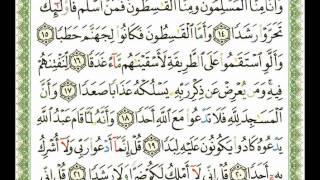 وَأَنَّا مِنَّا الْمُسْلِمُونَ وَمِنَّا الْقَاسِطُونَ فَمَنْ أَسْلَمَ فَأُولَٰئِكَ
تَحَرَّوْا رَشَدًا ١٤ وَأَمَّا الْقَاسِطُونَ فَكَانُوا لِجَهَنَّمَ حَطَبًا ١٥
وَأَلَّوِ اسْتَقَامُوا عَلَى الطَّرِيقَةِ لَأَسْقَيْنَاهُم مَّاءً غَدَقًا ١٦ لِّنَفْتِنَهُمْ
فِيهِ وَمَن يُعْرِضْ عَن ذِكْرِ رَبِّهِ يَسْلُكْهُ عَذَابًا صَعَدًا ١٧ وَأَنَّ
الْمَسَاجِدَ لِلَّهِ فَلَا تَدْعُوا مَعَ اللَّهِ أَحَدًا ١٨ وَأَنَّهُ لَمَّا قَامَ عَبْدُ اللَّهِ
يَدْعُوهُ كَادُوا يَكُونُونَ عَلَيْهِ لِبَدًا ١٩ قُلْ إِنَّمَا أَدْعُو رَبِّي وَلَا أُشْرِكُ
بِهِ أَحَدًا ٢٠ قُلْ إِنِّي لَا أَمْلِكُ لَكُمْ ضَرًّا وَلَا رَشَدًا ٢١ قُلْ إِنِّي